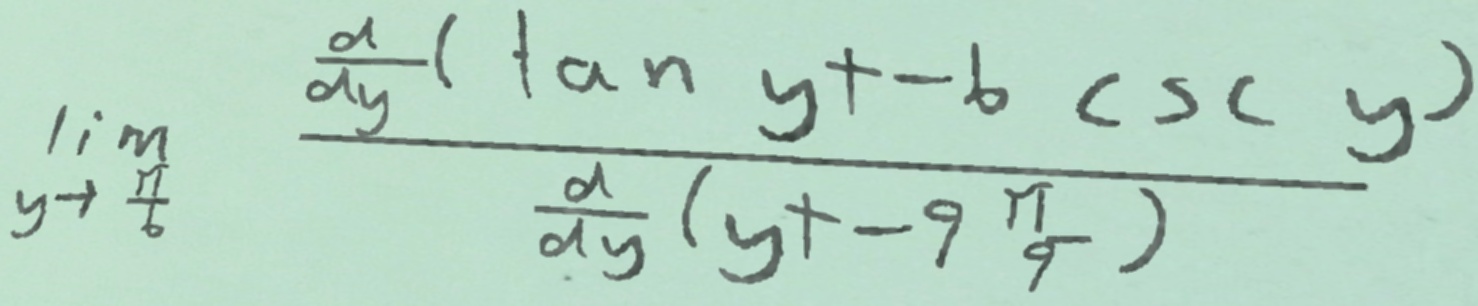 \lim_{y \to \frac{\pi}{6}} \frac{\frac{d}{dy}(\tan y + -6 \csc y)}{\frac{d}{dy}(y + -9\frac{\pi}{9})}